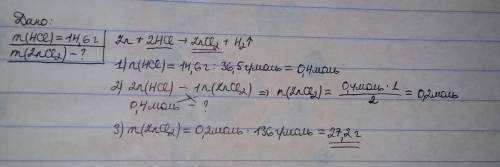 Дано:
m(HCl) = 14,6 г
m(ZnCl₂) - ?
Zn + 2HCl → ZnCl₂ + H₂↑
1) n(HCl) = 14,6 г : 36,5 г/моль = 0,4 моль
2) 2n(HCl) – 1n(ZnCl₂) ⇒ n(ZnCl₂) = 0,4 моль · 1 / 2 = 0,2 моль
0,4 моль – ?
3) m(ZnCl₂) = 0,2 моль · 136 г/моль = 27,2 г